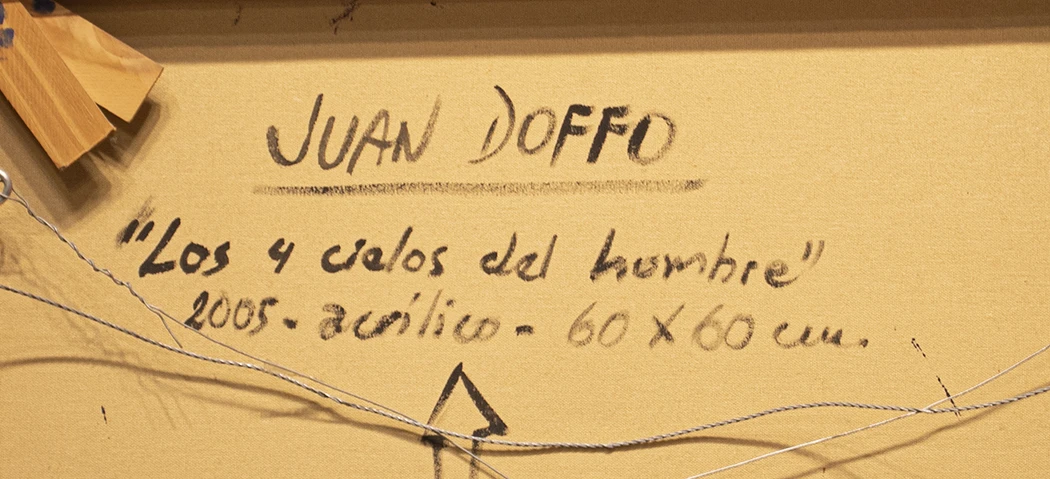 JUAN DOFFO
"Los 4 cielos del hombre"
2005. acrílico - 60 X 60 cm.